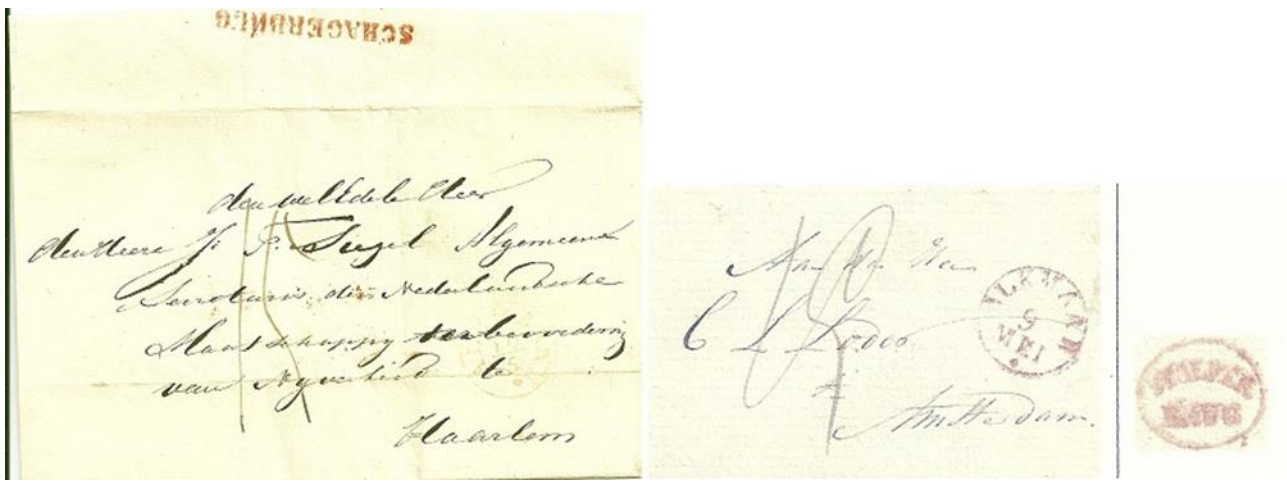 SCHAGERBRUG
den welEdele Heer
den Heere J: P. Algemeene
Secretaris der Nederlandsche
Maatschappy ter bevordering
van Nyverheid te
Haarlem
Aan den Heer
C L
Amsterdam.
ALKMAAR
9
MEI